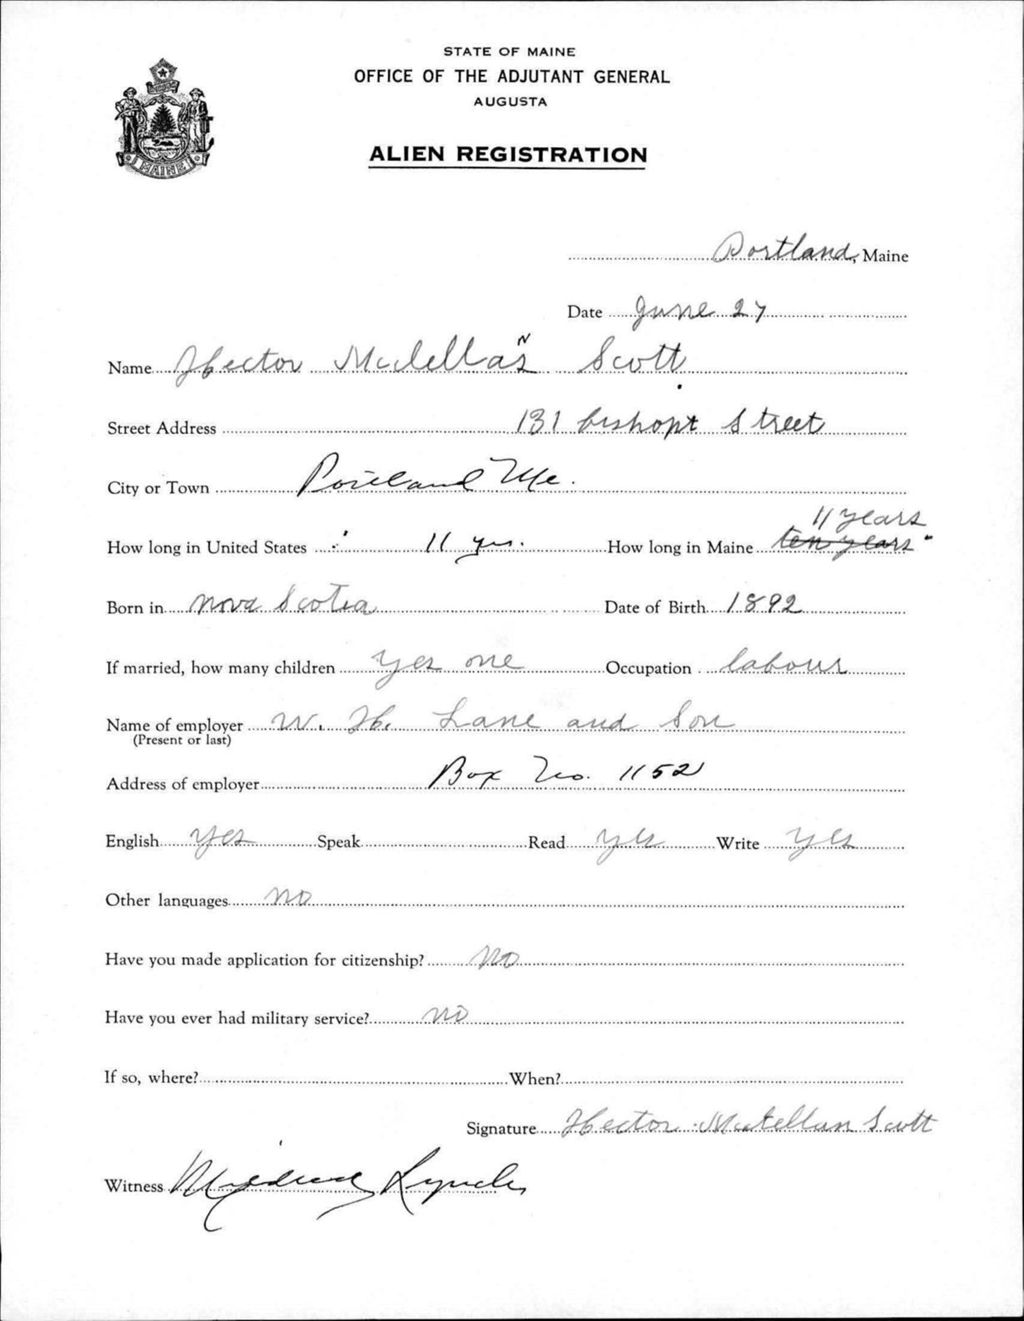 STATE OF MAINE
OFFICE OF THE ADJUTANT GENERAL
AUGUSTA
ALIEN REGISTRATION
MAINE
Portland, Maine
Date June 27
Name Hector Mclellan Scott
Street Address 131 bishopt Street
City or Town Portland Me.
11 years
How long in United States 11 yrs. How long in Maine ten years
Born in nova Scotia Date of Birth 1892
If married, how many children yes one Occupation labour
Name of employer W. H. Lane and Son
(Present or last)
Address of employer Box No. 1152
English yes Speak Read yes Write yes
Other languages no
Have you made application for citizenship? no
Have you ever had military service? no
If so, where? When?
Signature Hector Mclellan Scott
Witness Mildred Lynch